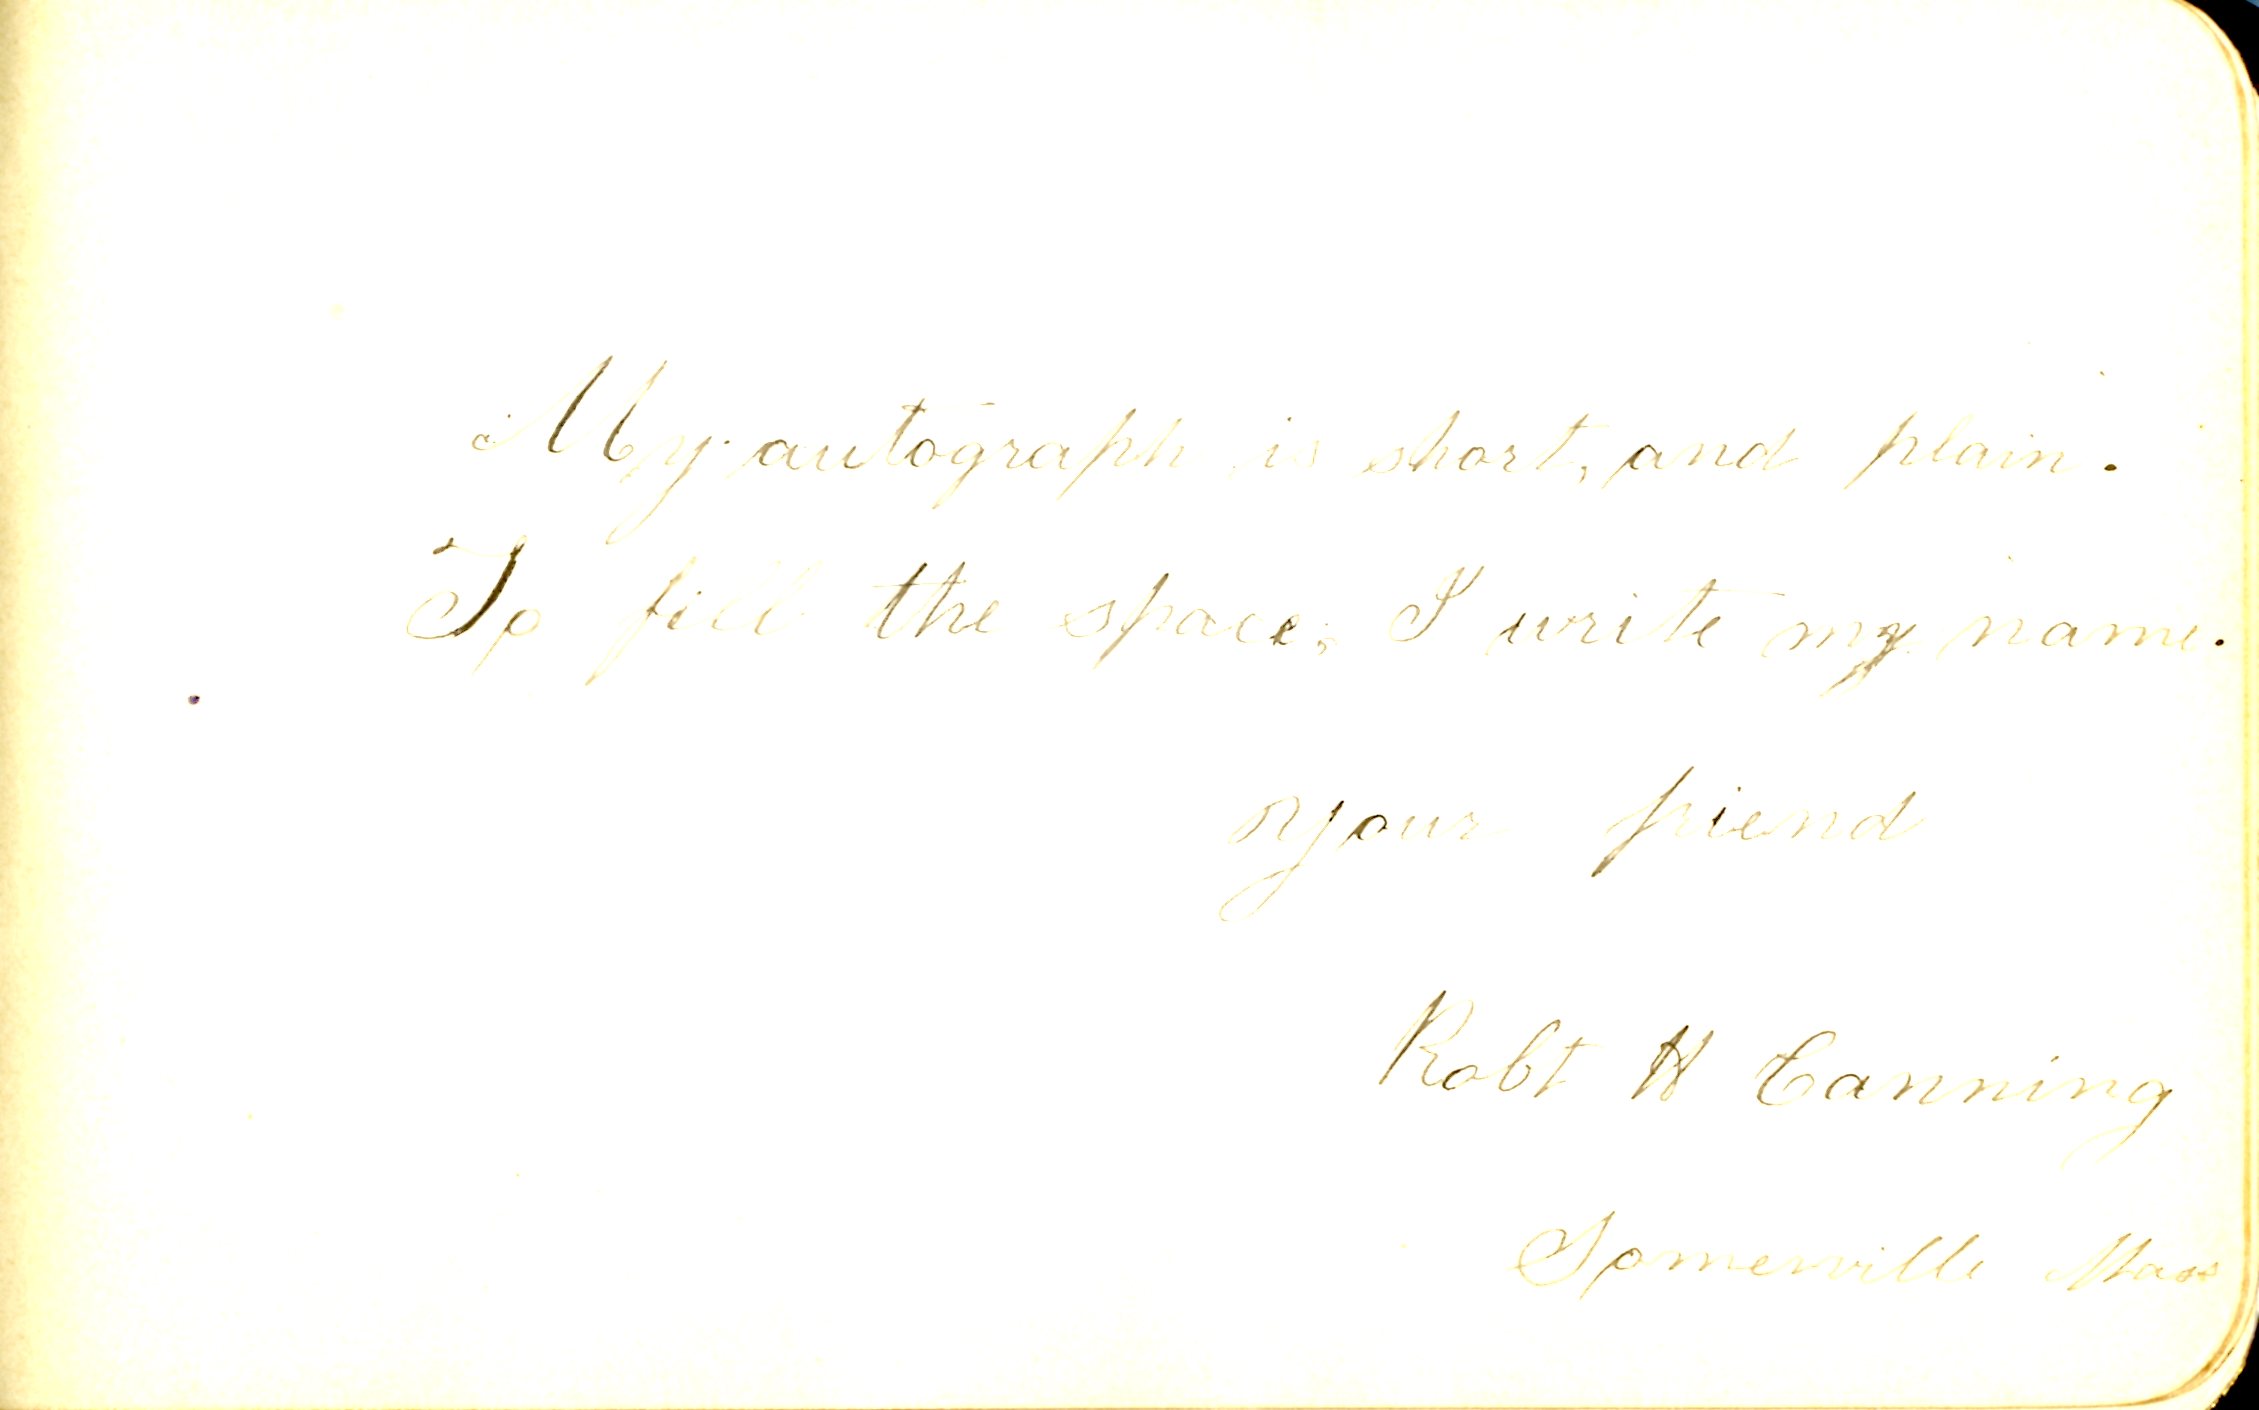 My autograph is short, and plain.
To fill the space, I write my name.
Your friend
Robt H Canning
Somerville Mass